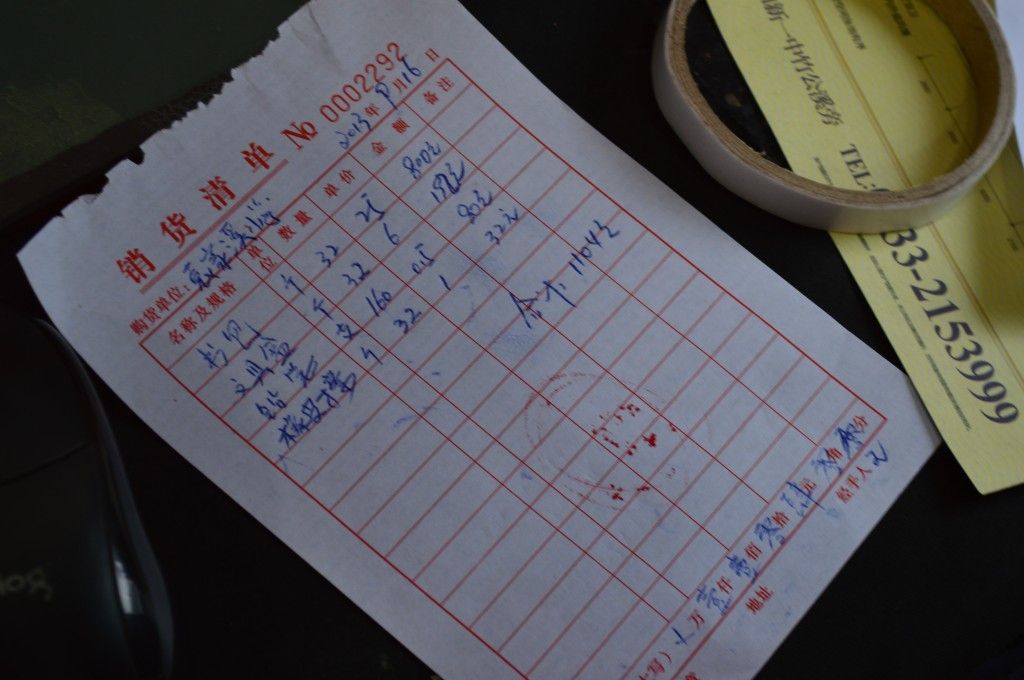 销货清单 No 0002292
购货单位:
2013年9月16日
名称及规格 单位 数量 单价 金额 备注
书包 个 32 25 800元
文具盒 个 32 6 192元
铅笔 支 160 0.5 80元
橡皮擦 个 32 1 32元
合计 1104元
写) 万壹仟壹佰零拾肆元零角零分
地址
经手人
TEL:
33-2153999